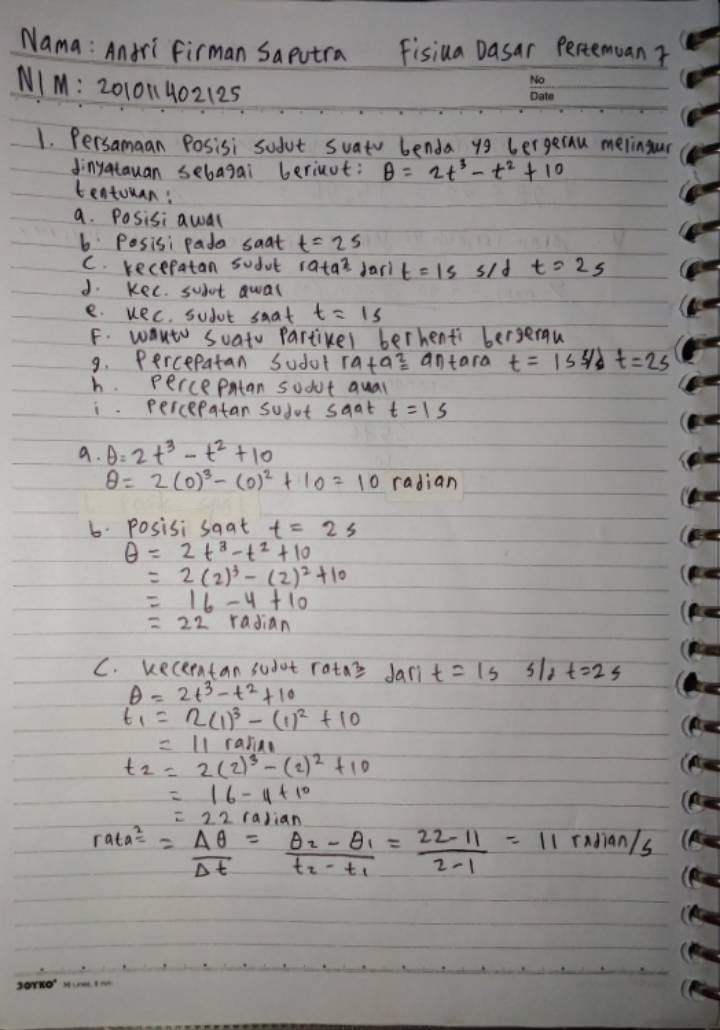 Nama: Andri Firman Saputra Fisika Dasar Pertemuan 7
NIM: 201011402125
No
Date
1. Persamaan Posisi sudut suatu benda yg bergerak melingkar
dinyatakan sebagai berikut: θ = 2t³ - t² + 10
tentukan:
a. Posisi awal
b. Posisi pada saat t = 2s
c. kecepatan sudut rata² dari t = 1s s/d t = 2s
d. kec. sudut awal
e. kec. sudut saat t = 1s
F. waktu suatu Partikel berhenti bergerak
g. Percepatan sudut rata² antara t = 1s s/d t = 2s
h. Percepatan sudut awal
i. Percepatan sudut saat t = 1s
a. θ = 2t³ - t² + 10
θ = 2(0)³ - (0)² + 10 = 10 radian
b. Posisi saat t = 2s
θ = 2t³ - t² + 10
= 2(2)³ - (2)² + 10
= 16 - 4 + 10
= 22 radian
C. kecepatan sudut rata² dari t = 1s s/d t = 2s
θ = 2t³ - t² + 10
t₁ = 2(1)³ - (1)² + 10
= 11 radian
t₂ = 2(2)³ - (2)² + 10
= 16 - 4 + 10
= 22 radian
rata² = Δθ/Δt = θ₂ - θ₁/t₂ - t₁ = 22-11/2-1 = 11 radian/s
JOYKO